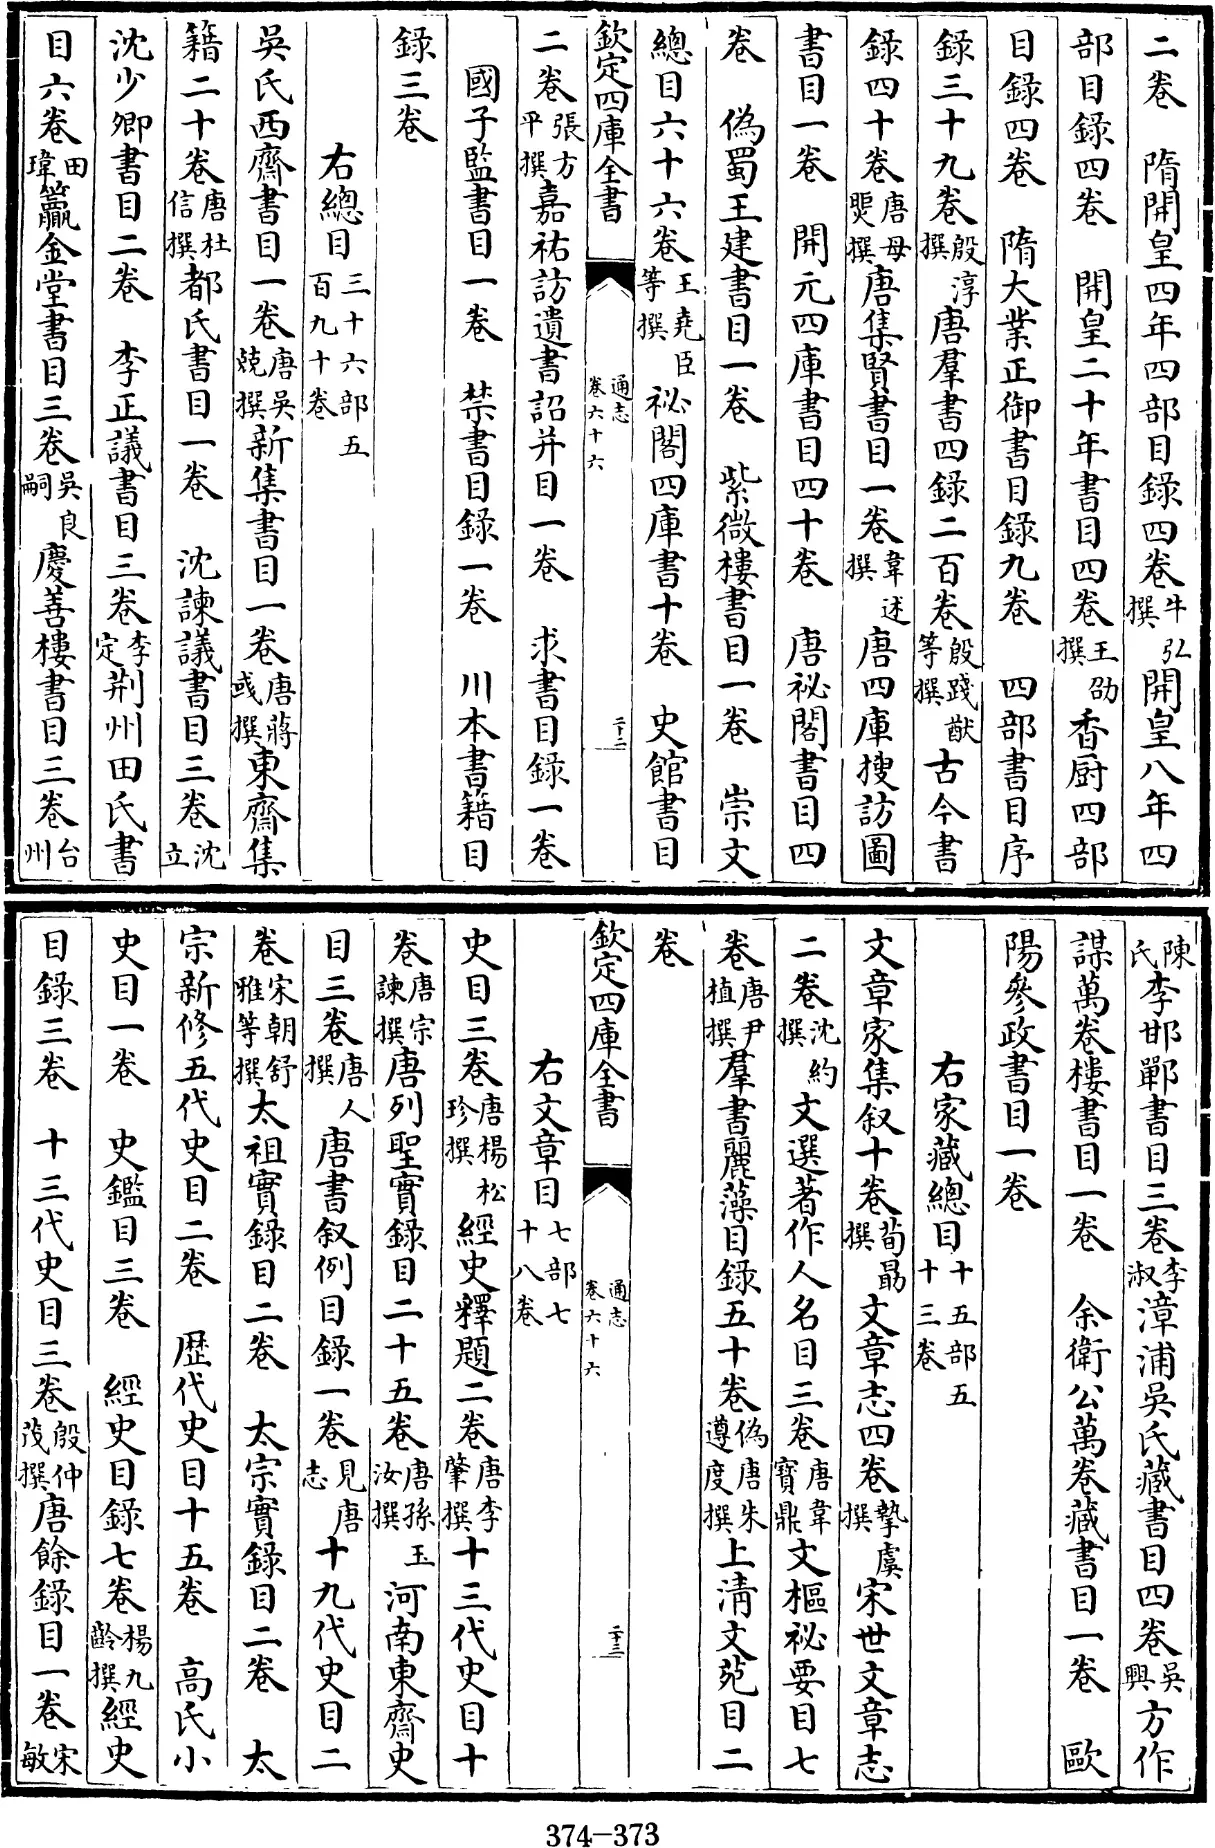 二卷　隋開皇四年四部目録四卷牛弘撰開皇八年四
部目録四卷　開皇二十年書目四卷王劭撰香厨四部
目録四卷　隋大業正御書目録九卷　四部書目序
録三十九卷殷淳撰唐羣書四録二百卷殷踐猷等撰古今書
録四十卷唐母煚撰唐集賢書目一卷韋述撰唐四庫搜訪圖
書目一卷　開元四庫書目四十卷　唐祕閣書目四
卷　偽蜀王建書目一卷　紫微樓書目一卷　崇文
總目六十六卷王堯臣等撰祕閣四庫書十卷　史館書目
欽定四庫全書　通志卷六十六　二十二
二卷張方平撰嘉祐訪遺書詔并目一卷　求書目録一卷
國子監書目一卷　禁書目録一卷　川本書籍目
録三卷
右總目三十六部五百九十卷
吳氏西齋書目一卷唐吳兢撰新集書目一卷唐蔣彧撰東齋集
籍二十卷唐杜信撰都氏書目一卷　沈諫議書目三卷沈立
沈少卿書目二卷　李正議書目三卷李定荆州田氏書
目六卷田瑋籝金堂書目三卷吳良嗣慶善樓書目三卷台州
陳氏李邯鄲書目三卷李淑漳浦吳氏藏書目四卷吳興方作
謀萬卷樓書目一卷　余衛公萬卷藏書目一卷　歐
陽參政書目一卷
右家藏總目十五部五十三卷
文章家集叙十卷荀勗撰文章志四卷摯虞撰宋世文章志
二卷沈約撰文選著作人名目三卷唐韋寳鼎文樞祕要目七
卷唐尹植撰羣書麗藻目録五十卷偽唐朱遵度撰上清文苑目二
卷
欽定四庫全書　通志卷六十六　二十三
右文章目七部七十八卷
史目三卷唐楊松珍撰經史釋題二卷唐李肇撰十三代史目十
卷唐宗諫撰唐列聖實録目二十五卷唐孫玉汝撰河南東齋史
目三卷唐人撰唐書叙例目録一卷見唐志十九代史目二
卷宋朝舒雅等撰太祖實録目二卷　太宗實録目二卷　太
宗新修五代史目二卷　歴代史目十五卷　高氏小
史目一卷　史鑑目三卷　經史目録七卷楊九齡撰經史
目録三卷　十三代史目三卷殷仲茂撰唐餘録目一卷宋敏
374-373